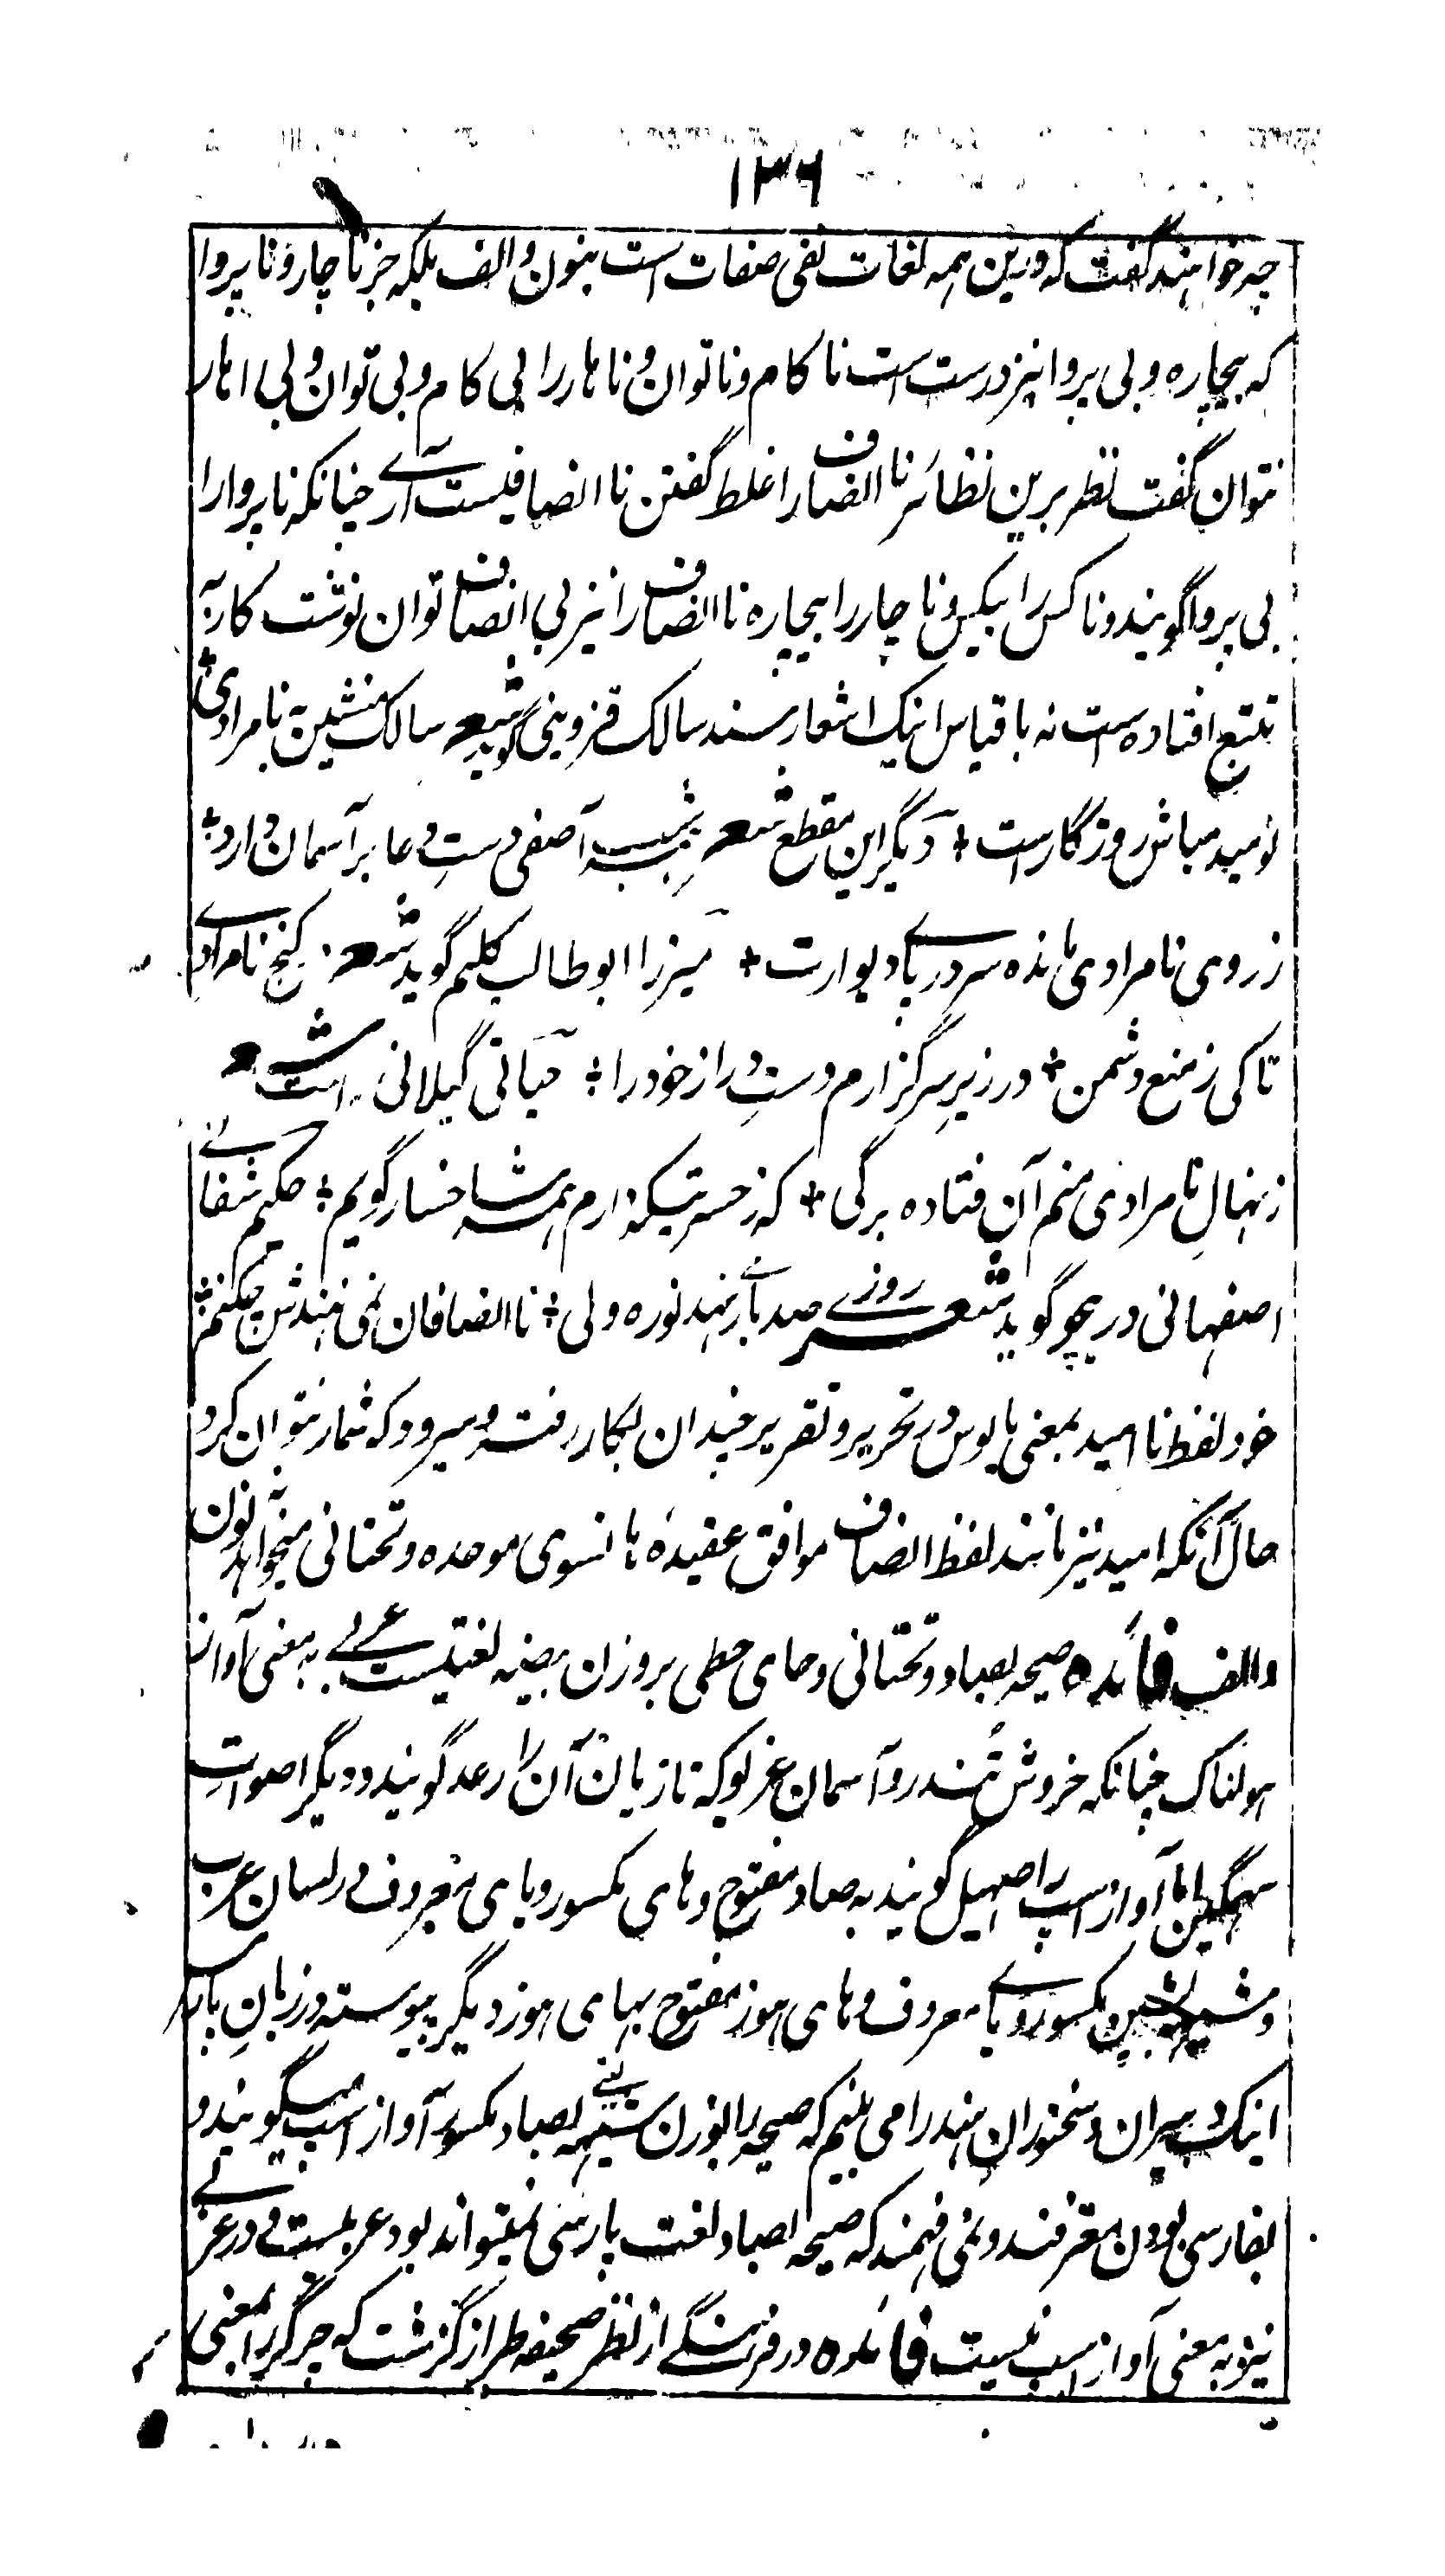 ۱۳۶
چه خواهند گفت که درین همه لغات نفی صفات است بنون و الف بلکه جز ناچار و ناپروا
که بیچاره و بی پروا نیز درست است ناکام و ناتوان و ناهار را بی کام و بی توان و بی اهار
نتوان گفت نظر برین نظائر نا انصاف را غلط گفتن نا انصافیست آرے چنانکه ناپروا را
بی پروا گویند و ناکس را بیکس و ناچار را بیچاره نا انصاف را نیز بی انصاف توان نوشت کار به
تتبع افتاده است نه با قیاس اینک اشعار سند سالک قزوینی گوید شعر سالک منشین به نامرادی
نومید مباش روزگارست + دیگر این مقطع شعر بشبه آصفی دست دعا بر آسمان دارد
ز روی نامرادی مانده سر در پاے دیوارت + میرزا ابوطالب کلیم گوید شعر کنج نامرادے
تا کی ز منع دشمن + در زیر سر گزارم دست دراز خود را + حیاتی گیلانی راست شعر
ز نهال نامرادی منم آن فتاده برگی + که ز حسرتیکه دارم همه شاخسار گویم + حکیم شفائے
اصفهانی در هجو گوید شعر روزے صد بار نهند نوره ولی + نا انصافان نمی نهندش چکنم
خود لفظ نا امید بمعنی مایوس در تحریر و تقریر چندان بکار رفته و میرود که شمار نتوان کرد
حال آنکه امید نیز مانند لفظ انصاف موافق عقیدهٔ هانسوی موحده و تحتانی میخواهد نه نون
و الف فائده صیحه بصاد و تحتانی و حای حطی بروزن بیضه لغتیست عربے به معنی آواز
هولناک چنانکه خروش تندر و آسمان غریو که تازیان آن را رعد گویند و دیگر اصوات
سهمگین اما آواز اسپ را صهیل گویند به صاد مفتوح و های مکسور و یای معروف در لسان عرب
و شیهه بشین مکسور و یاے معروف و های هوز مفتوح بهای هوز دیگر پیوسته در زبان پارسی
اینک دبیران و سخنوران هند را می بینم که صیحه را بوزن شیهه یعنے بصاد مکسور آواز اسپ میگویند و
بفارسی بودن معترفند و نمی فهمند که صیحه بصاد لغت پارسی نمیتواند بود عربیست و در عربے
نیز به معنی آواز اسپ نیست فائده در فرهنگے از نظر صحیفه طراز گزشت که جرگر را بمعنی